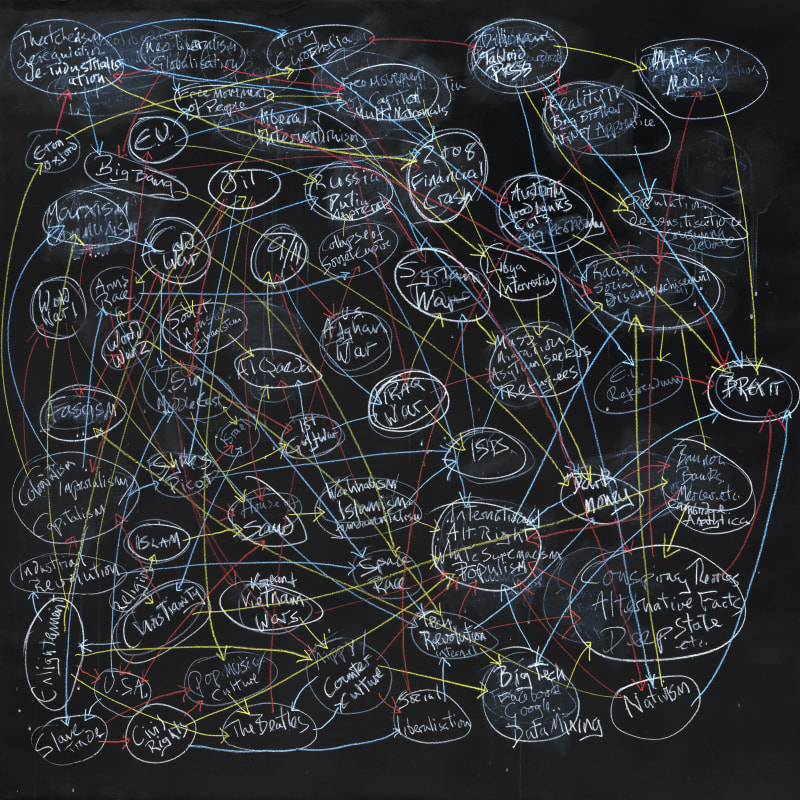 Thatcherism
de-industrialis
ation
neo-liberalism
Globalisation
Tory
Europhobia
Billionaire
Tabloid
Press
Anti-E.U
Media
Free Movement
of People
Free Movement
Capital
Multi Nationals
Reality TV
Big Brother
Apprentice
liberal
Internationalism
Eton
Oxford
E.U.
Big Bang
OIL
Russia
Putin
2008
Financial
Crash
Austerity
Food banks
Cuts
Marxism
Communism
Cold
War
9/11
Collapse of
Soviet Empire
Syrian
War
Libya
Intervention
Racism
Social
Disenfranchisement
World
War 1
Arms
Race
World
War 2
Soviet
Afghan
War
Mass
Migration
Asylum Seekers
Refugees
E.U
Referendum
BREXIT
US in
Middle East
Al Qaeda
IRAQ
War
Fascism
Israel
1st
Gulf War
ISIS
Colonialism
Imperialism
Capitalism
Sykes
Picot
House of
Saud
Islamism
Fundamentalism
Dark
Money
Bannon
Banks
Mercer etc
Cambridge
Analytica
International
Alt-Right
White Supremacism
Populism
ISLAM
Industrial
Revolution
Religion
Christianity
Space
Race
Conspiracy Theories
Alternative Facts
Deep State
etc.
Vietnam
Wars
Enlightenment
Revolution
Internet
U.S.A.
Pop Music
Culture
Hippy
Counter
Culture
Big Tech
Facebook
Google
Data Mixing
Nativism
Slave
Trade
Civil
Rights
The Beatles
Social
Liberalisation